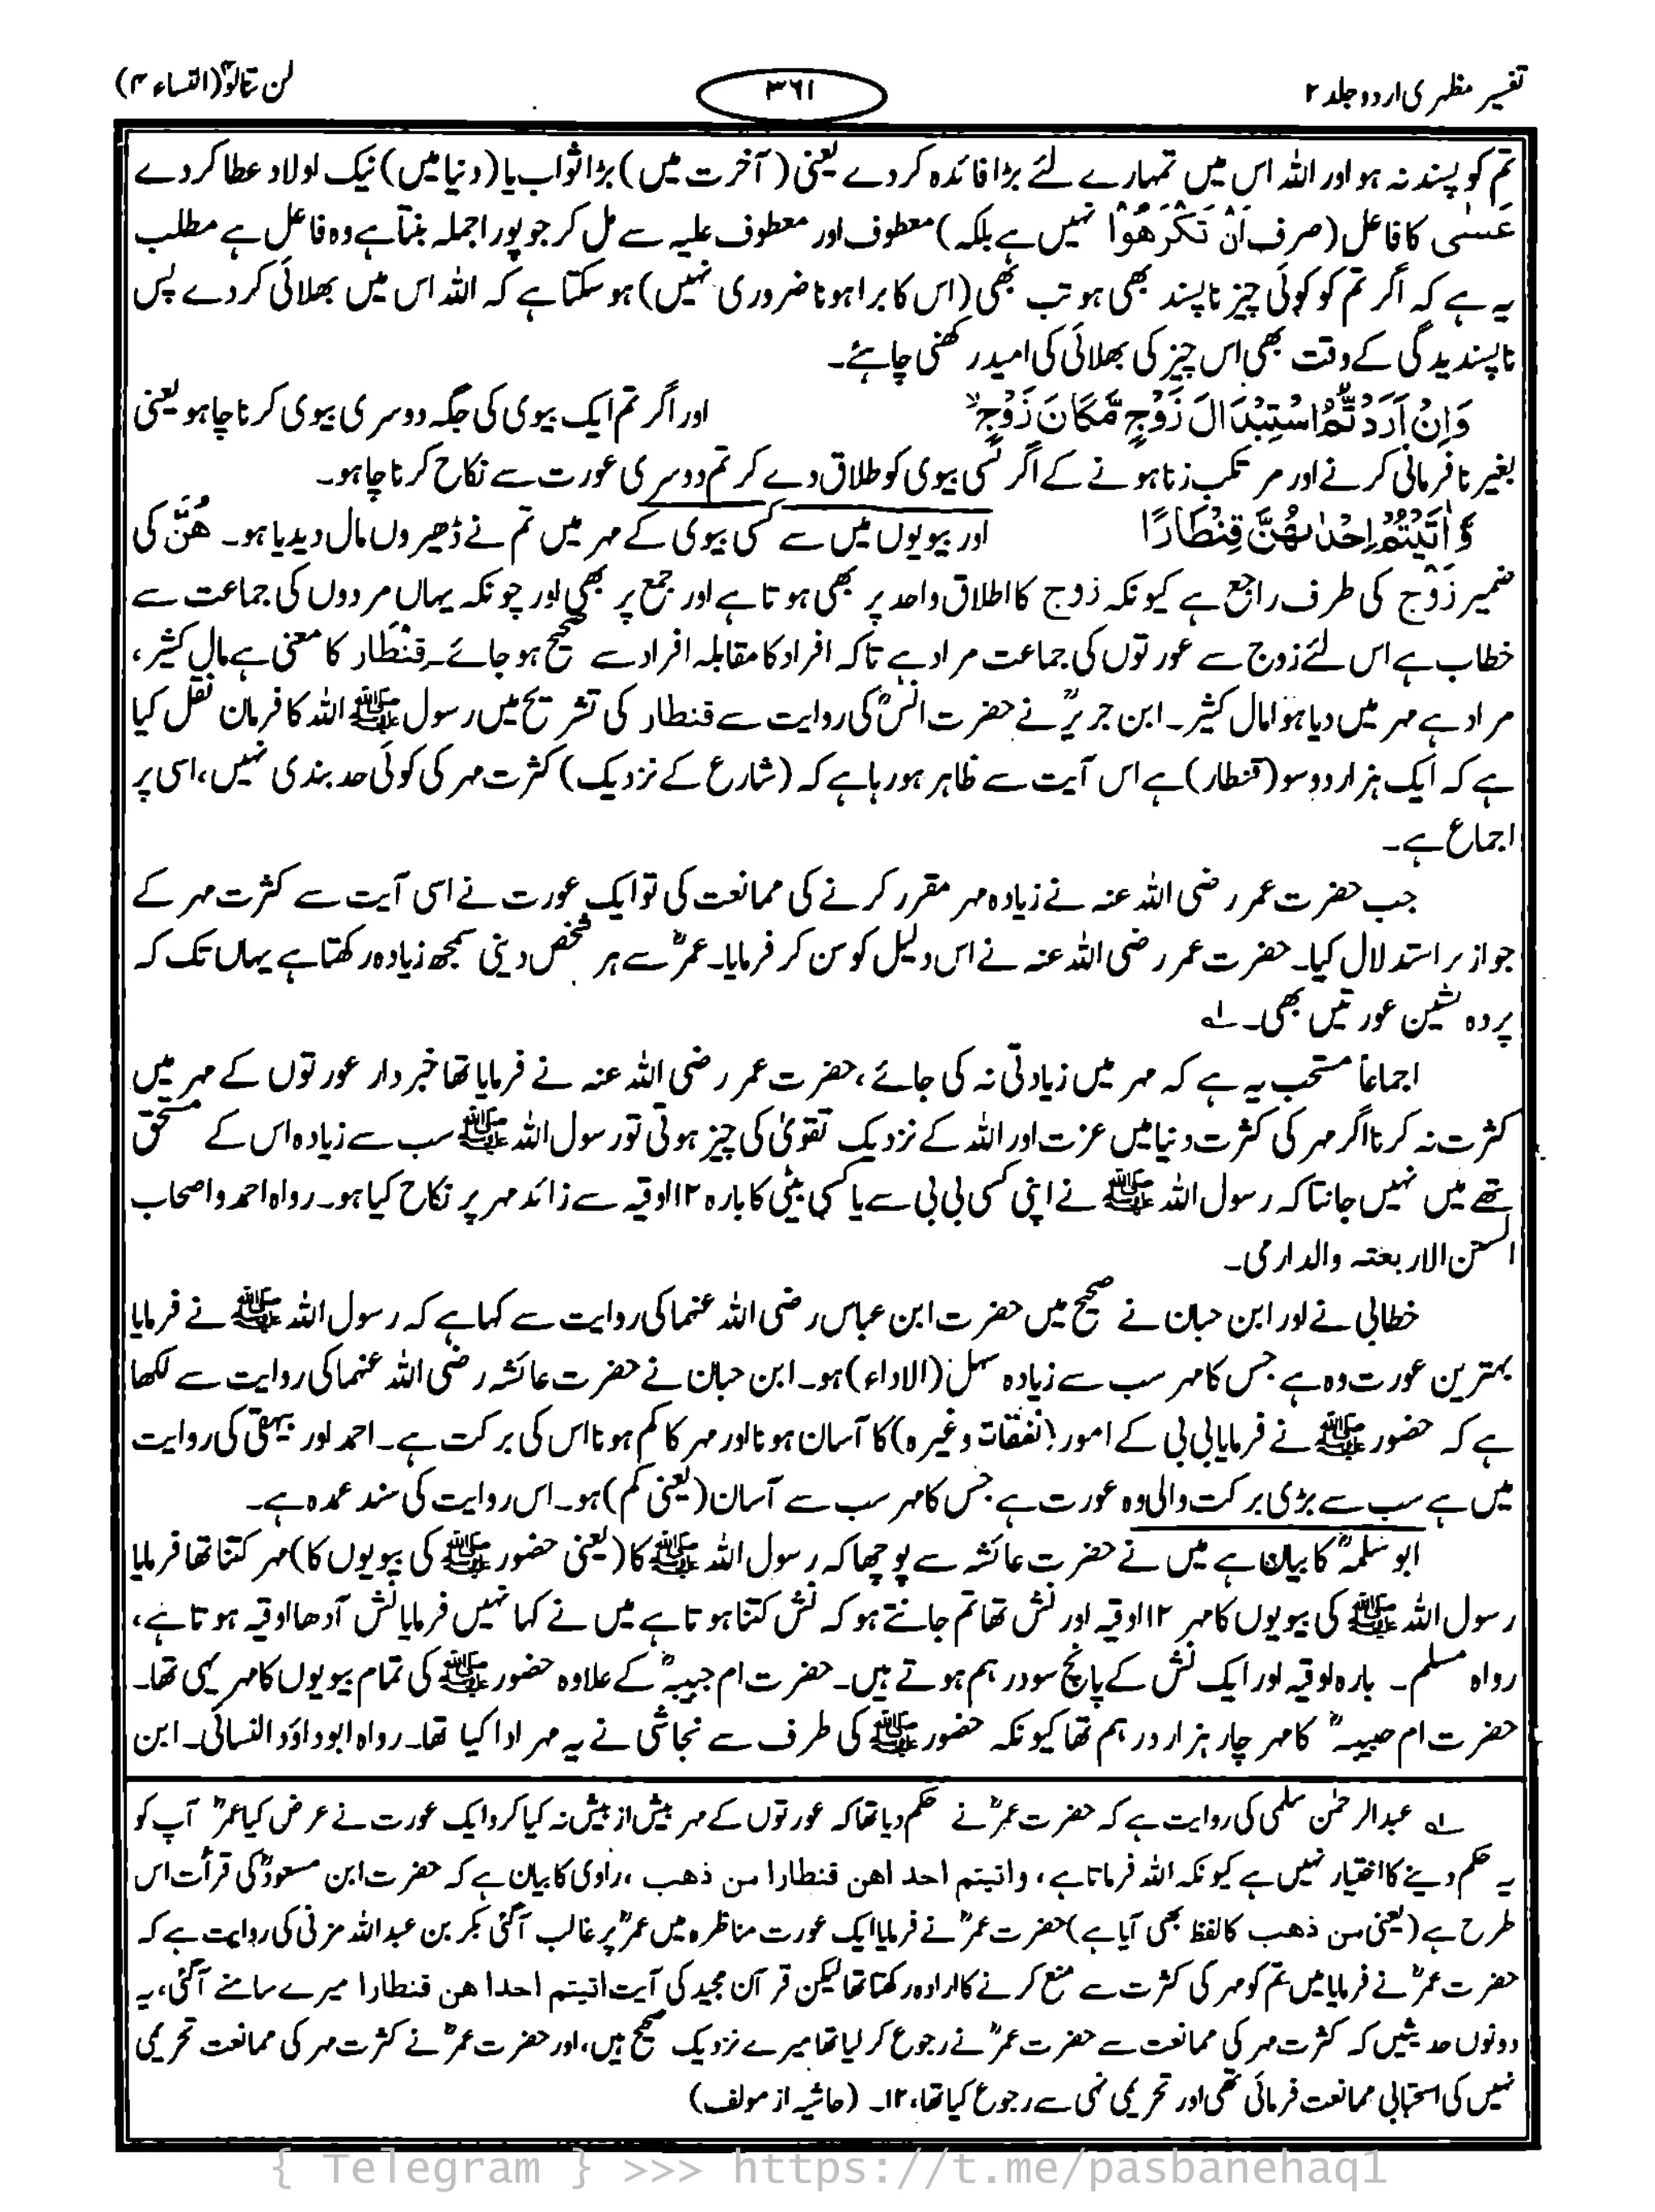 تفسیر مظہری اردو جلد ۲
۳۶۱
لن تنالوا (النساء ۴)
تم کو پسند نہ ہو اور اللہ اس میں تمہارے لئے بڑا فائدہ کر دے یعنی (آخرت میں) بڑا ثواب یا (دنیا میں) نیک اولاد عطا کر دے
عَسٰی کا فاعل (صرف اَنْ تَکْرَهُوْا نہیں ہے بلکہ) معطوف اور معطوف علیہ سے مل کر جو پورا جملہ بنتا ہے وہ فاعل ہے مطلب
یہ ہے کہ اگر تم کو کوئی چیز ناپسند بھی ہو تب بھی (اس کا برا ہونا ضروری نہیں) ہو سکتا ہے کہ اللہ اس میں بھلائی کر دے پس
ناپسندیدگی کے وقت بھی اس چیز کی بھلائی کی امید رکھنی چاہئے۔
وَاِنْ اَرَدْتُّمُ اسْتِبْدَالَ زَوْجٍ مَّكَانَ زَوْجٍ ۙ اور اگر تم ایک بیوی کی جگہ دوسری بیوی کرنا چاہو یعنی
بغیر نافرمانی کرنے اور مرتکب زنا ہونے کے اگر کسی بیوی کو طلاق دے کر تم دوسری عورت سے نکاح کرنا چاہو۔
وَّاٰتَيْتُمْ اِحْدٰىهُنَّ قِنْطَارًا اور بیویوں میں سے کسی بیوی کے مہر میں تم نے ڈھیروں مال دیدیا ہو۔ هُنَّ کی
ضمیر زَوْج کی طرف راجع ہے کیونکہ زوج کا اطلاق واحد پر بھی ہوتا ہے اور جمع پر بھی اور چونکہ یہاں مردوں کی جماعت سے
خطاب ہے اس لئے زوج سے عورتوں کی جماعت مراد ہے تاکہ افراد کا مقابلہ افراد سے صحیح ہو جائے۔ قِنْطَار کا معنی ہے مال کثیر،
مراد ہے مہر میں دیا ہوا مال کثیر۔ ابن جریرؒ نے حضرت انسؓ کی روایت سے قنطار کی تشریح میں رسول ﷺ اللہ کا فرمان نقل کیا
ہے کہ ایک ہزار دوسو (قنطار) ہے اس آیت سے ظاہر ہو رہا ہے کہ (شارع کے نزدیک) کثرت مہر کی کوئی حد بندی نہیں، اسی پر
اجماع ہے۔
جب حضرت عمر رضی اللہ عنہ نے زیادہ مہر مقرر کرنے کی ممانعت کی تو ایک عورت نے اسی آیت سے کثرت مہر کے
جواز پر استدلال کیا۔ حضرت عمر رضی اللہ عنہ نے اس دلیل کو سن کر فرمایا۔ عمرؓ سے ہر شخص دینی سمجھ زیادہ رکھتا ہے یہاں تک کہ
پردہ نشین عورتیں بھی۔ ۱؎
اجماعاً مستحب یہ ہے کہ مہر میں زیادتی نہ کی جائے، حضرت عمر رضی اللہ عنہ نے فرمایا تھا خبر دار عورتوں کے مہر میں
کثرت نہ کرنا اگر مہر کی کثرت دنیا میں عزت اور اللہ کے نزدیک تقویٰ کی چیز ہوتی تو رسول اللہ ﷺ سب سے زیادہ اس کے مستحق
تھے میں نہیں جانتا کہ رسول اللہ ﷺ نے اپنی کسی بی بی سے یا کسی بیٹی کا بارہ ۱۲ اوقیہ سے زائد مہر پر نکاح کیا ہو۔ رواہ احمد و اصحاب
السنن الاربعتہ والدارمی۔
خطابی نے اور ابن حبان نے صحیح میں حضرت ابن عباس رضی اللہ عنہما کی روایت سے کہا ہے کہ رسول اللہ ﷺ نے فرمایا
بہترین عورت وہ ہے جس کا مہر سب سے زیادہ سہل (الاداء) ہو۔ ابن حبان نے حضرت عائشہ رضی اللہ عنہما کی روایت سے لکھا
ہے کہ حضور ﷺ نے فرمایا بی بی کے امور (نفقات وغیرہ) کا آسان ہونا اور مہر کا کم ہونا اس کی برکت ہے۔ احمد اور بیہقی کی روایت
میں ہے سب سے بڑی برکت والی وہ عورت ہے جس کا مہر سب سے آسان (یعنی کم) ہو۔ اس روایت کی سند عمدہ ہے۔
ابو سلمہؓ کا بیان ہے میں نے حضرت عائشہ سے پوچھا کہ رسول اللہ ﷺ کا (یعنی حضور ﷺ کی بیویوں کا) مہر کتنا تھا فرمایا
رسول اللہ ﷺ کی بیویوں کا مہر ۱۲ اوقیہ اور نش تھا تم جانتے ہو کہ نش کتنا ہوتا ہے میں نے کہا نہیں فرمایا نش آدھا اوقیہ ہوتا ہے،
رواہ مسلم۔ بارہ اوقیہ اور ایک نش کے پانچ سو درہم ہوتے ہیں۔ حضرت ام حبیبہؓ کے علاوہ حضور ﷺ کی تمام بیویوں کا مہر یہی تھا۔
حضرت ام حبیبہؓ کا مہر چار ہزار درہم تھا کیونکہ حضور ﷺ کی طرف سے نجاشی نے یہ مہر ادا کیا تھا۔ رواہ ابو داؤد النسائی۔ ابن
۱؎ عبدالرحمٰن سلمی کی روایت ہے کہ حضرت عمرؓ نے حکم دیا تھا کہ عورتوں کے مہر بیش از بیش نہ کیا کرو ایک عورت نے عرض کیا عمرؓ آپ کو
یہ حکم دینے کا اختیار نہیں ہے کیونکہ اللہ فرماتا ہے، واتیتم احد اهن قنطارا من ذهب، راوی کا بیان ہے کہ حضرت ابن مسعودؓ کی قرأت اس
طرح ہے (یعنی من ذهب کا لفظ بھی آیا ہے) حضرت عمرؓ نے فرمایا ایک عورت مناظرہ میں عمرؓ پر غالب آگئی بکر بن عبداللہ مزنی کی روایت ہے کہ
حضرت عمرؓ نے فرمایا میں تم کو مہر کی کثرت سے منع کرنے کا ارادہ رکھتا تھا لیکن قرآن مجید کی آیت اتیتم احدا هن قنطارا میرے سامنے آگئی، یہ
دونوں حدیثیں کہ کثرت مہر کی ممانعت سے حضرت عمرؓ نے رجوع کر لیا تھا میرے نزدیک صحیح ہیں، اور حضرت عمرؓ نے کثرت مہر کی ممانعت تحریمی
نہیں کی استحبابی ممانعت فرمائی تھی اور تحریمی نہی سے رجوع کیا تھا، ۱۲۔ (حاشیہ از مولف)
{ Telegram } >>> https://t.me/pasbanehaq1